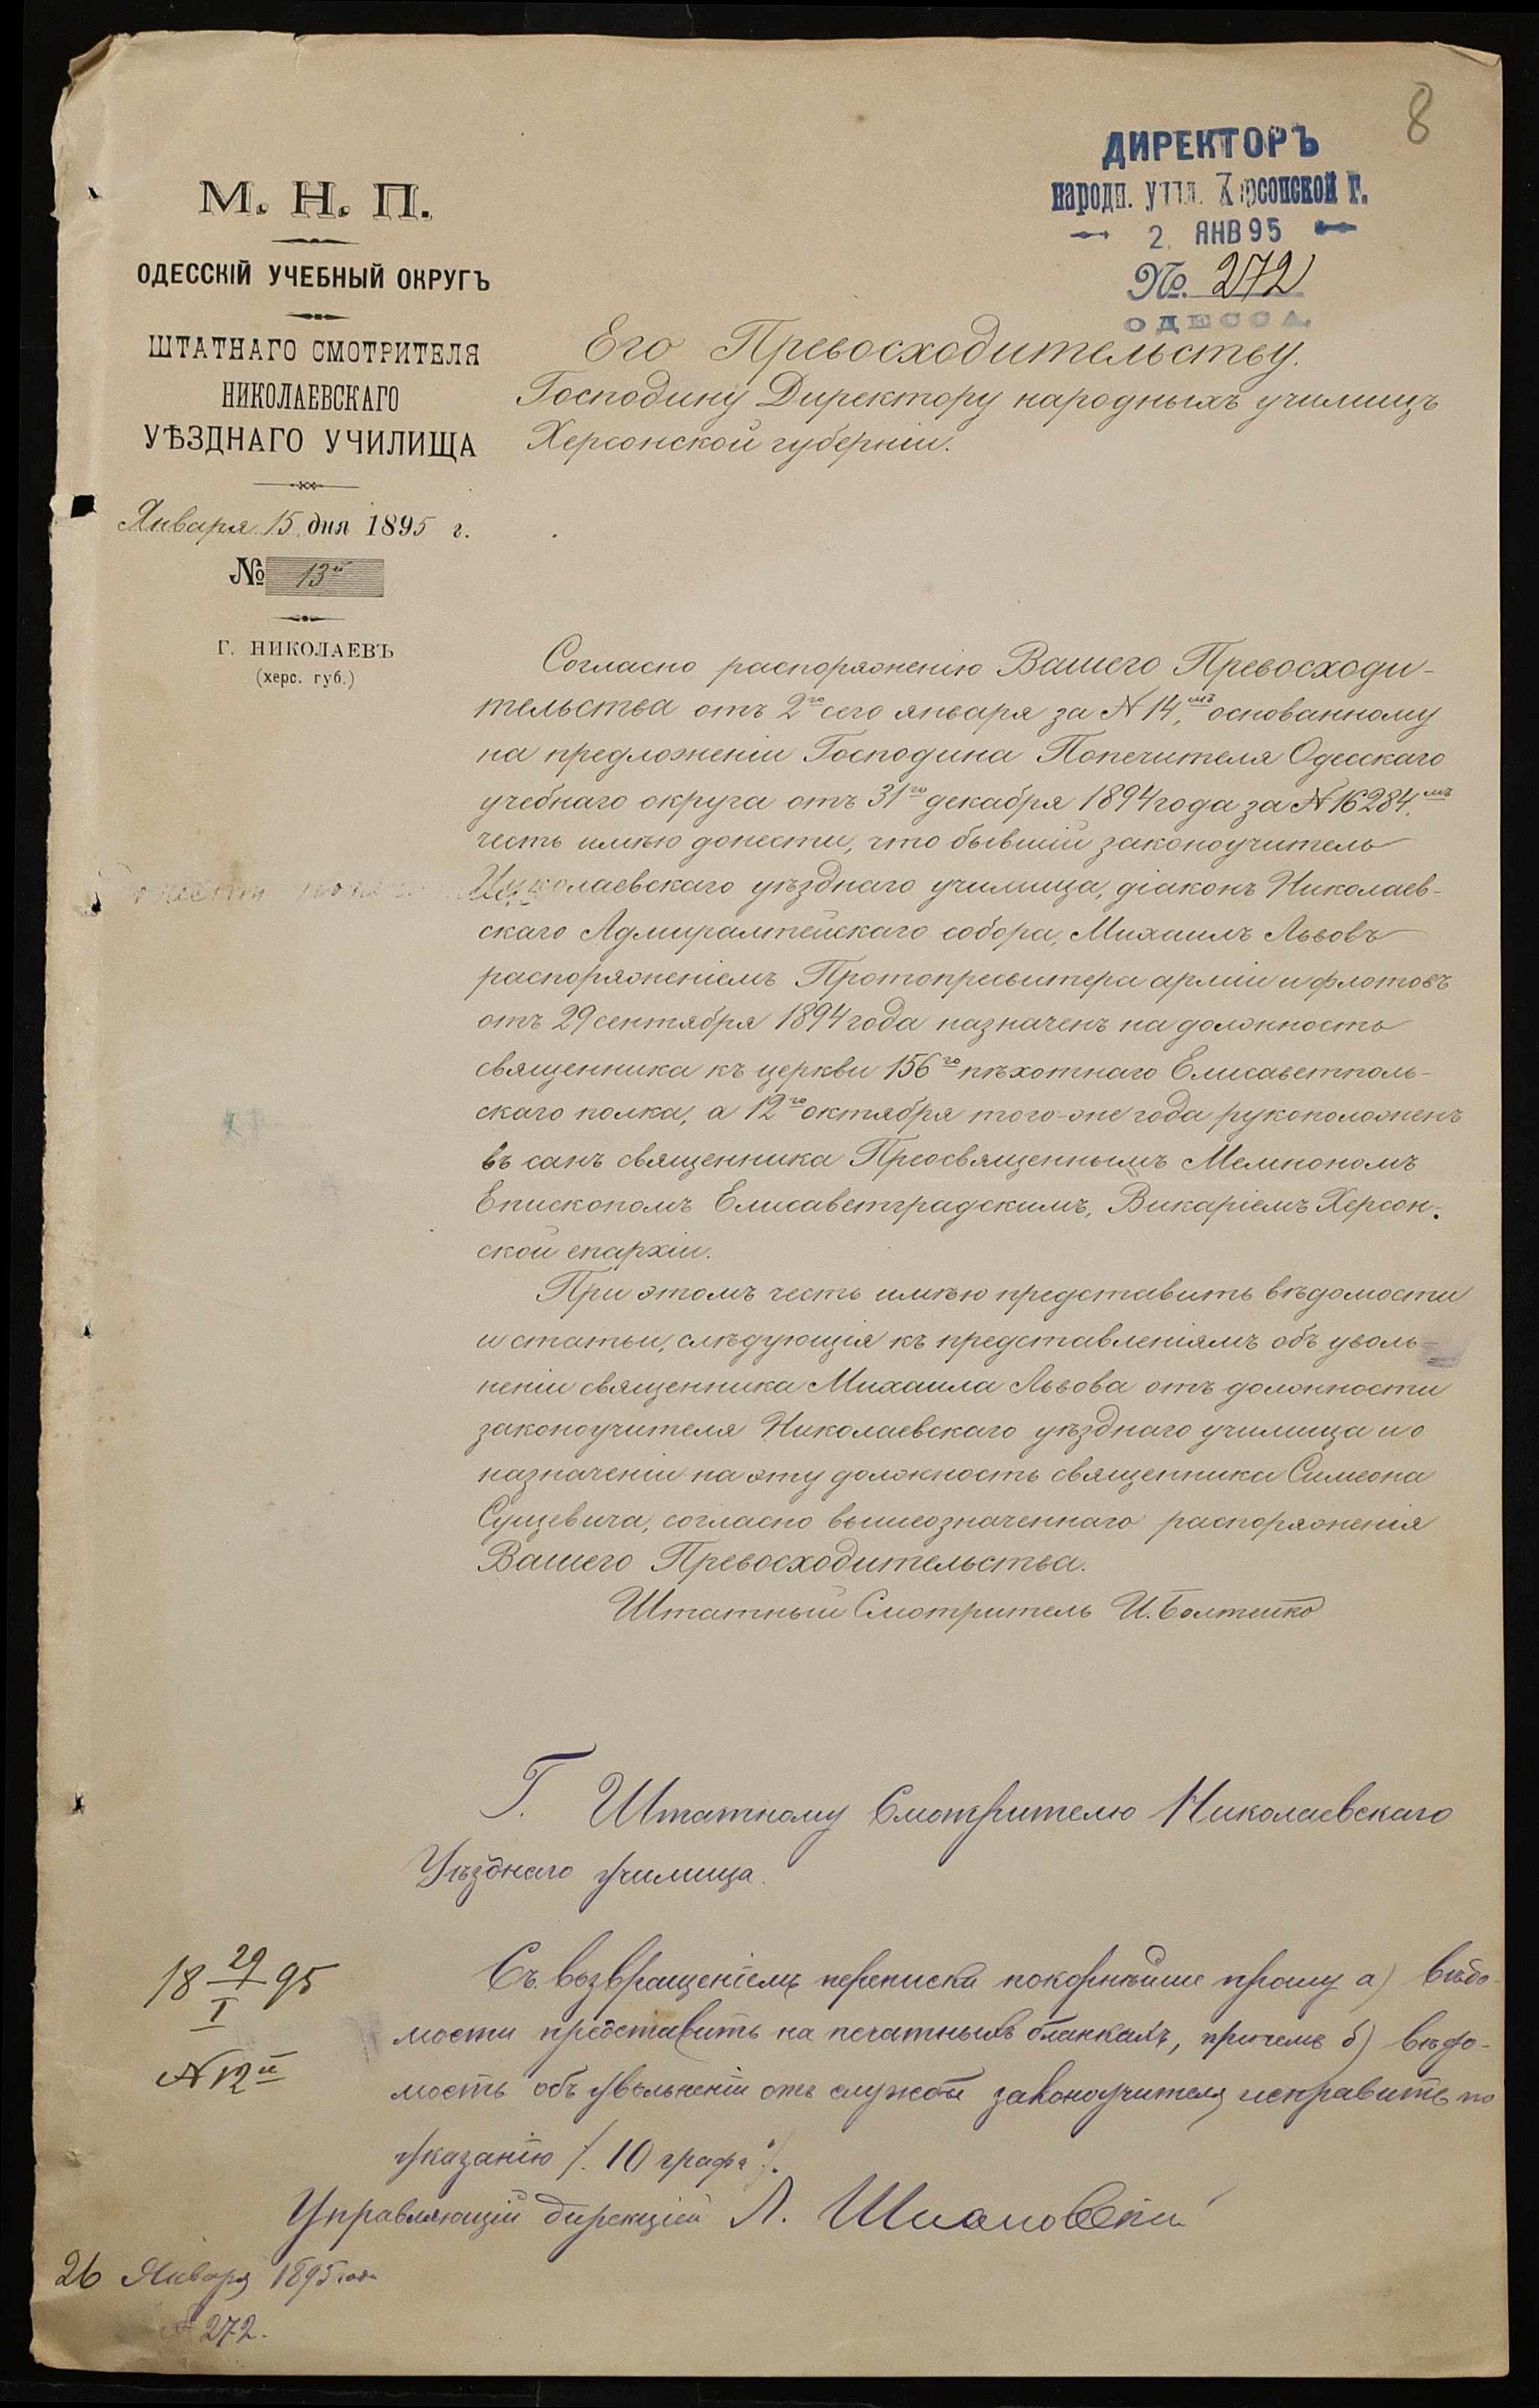 8
ДИРЕКТОРЪ
народн. учил. Херсонской г.
2 ЯНВ 95
№. 272
ОДЕССА
М. Н. П.
ОДЕССКІЙ УЧЕБНЫЙ ОКРУГЪ
ШТАТНАГО СМОТРИТЕЛЯ
НИКОЛАЕВСКАГО
УѢЗДНАГО УЧИЛИЩА
Января 15 дня 1895 г.
№ 13й
Г. НИКОЛАЕВЪ
(херс. губ.)
Его Превосходительству.
Господину Директору народныхъ училищъ
Херсонской губерніи.
Согласно распоряженію Вашего Превосходи-
тельства отъ 2го сего января за № 14,мъ основанному
на предложеніи Господина Попечителя Одесскаго
учебнаго округа отъ 31го декабря 1894 года за № 16284,мъ
честь имѣю донести, что бывшій законоучитель
Николаевскаго уѣзднаго училища, діаконъ Николаев-
скаго Адмиралтейскаго собора, Михаилъ Львовъ
распоряженіемъ Протопресвитера арміи и флотовъ
отъ 29 сентября 1894 года назначенъ на должность
священника къ церкви 156го пѣхотнаго Елисаветполь-
скаго полка, а 12го октября того-же года рукоположенъ
въ санъ священника Преосвященнымъ Мемнономъ
Епископомъ Елисаветградскимъ, Викаріемъ Херсон-
ской епархіи.
При этомъ честь имѣю представить вѣдомости
и статьи, слѣдующія къ представленіямъ объ уволь-
неніи священника Михаила Львова отъ должности
законоучителя Николаевскаго уѣзднаго училища и о
назначеніи на эту должность священника Симеона
Сущевича, согласно вышеозначеннаго распоряженія
Вашего Превосходительства.
Штатный Смотритель И. Болтенко
Г. Штатному Смотрителю Николаевскаго
Уѣзднаго училища.
18 29/I 95
№ 12й
Съ возвращеніемъ переписки покорнѣйше прошу а) вѣдо-
мости представить на печатныхъ бланкахъ, причемъ б) вѣдо-
мость объ увольненіи отъ службы законоучителя исправить по
указанію /. 10 графа ./.
Управляющій дирекціей Л.
26 Января 1895 года
№ 272.